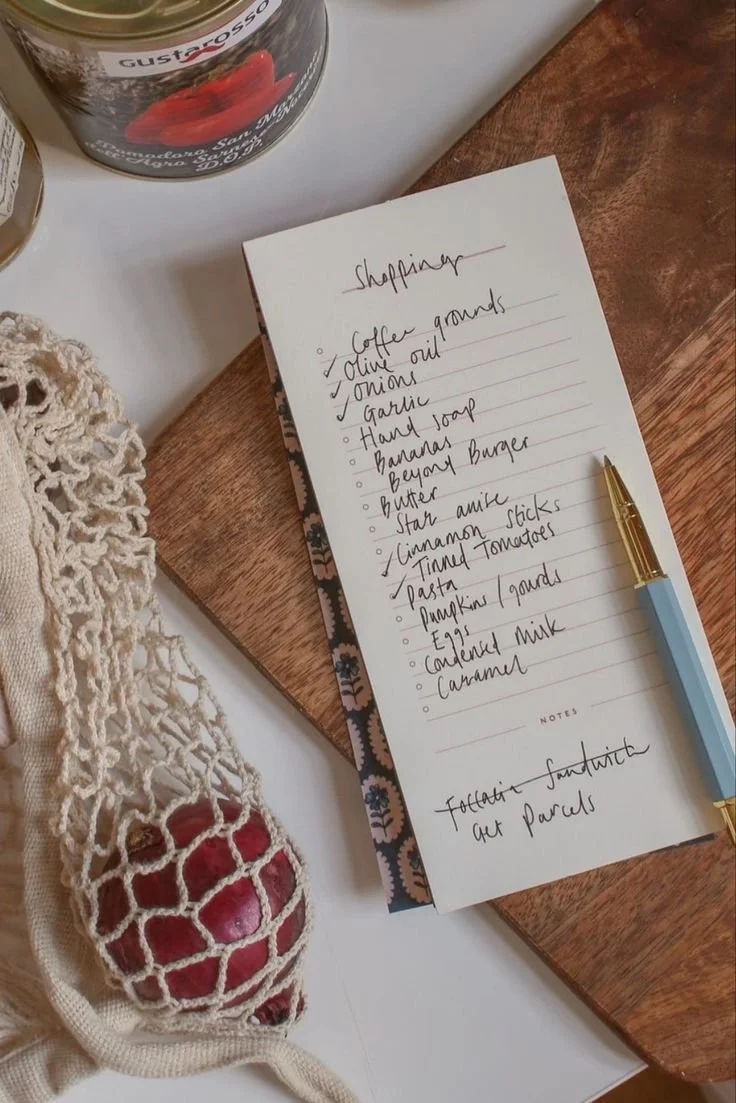 Gustarosso
Pomodoro San Marzano
dell'Agro Sarnese-Nocerino
D.O.P.
Shopping
Coffee grounds
✓ Olive oil
✓ Onions
✓ Garlic
Hand soap
Bananas
Beyond Burger
Butter
Star anise
Cinnamon sticks
✓ Tinned Tomatoes
✓ Pasta
Pumpkins / gourds
Eggs
Condensed milk
Caramel
NOTES
Foccacia Sandwich
Get Parcels